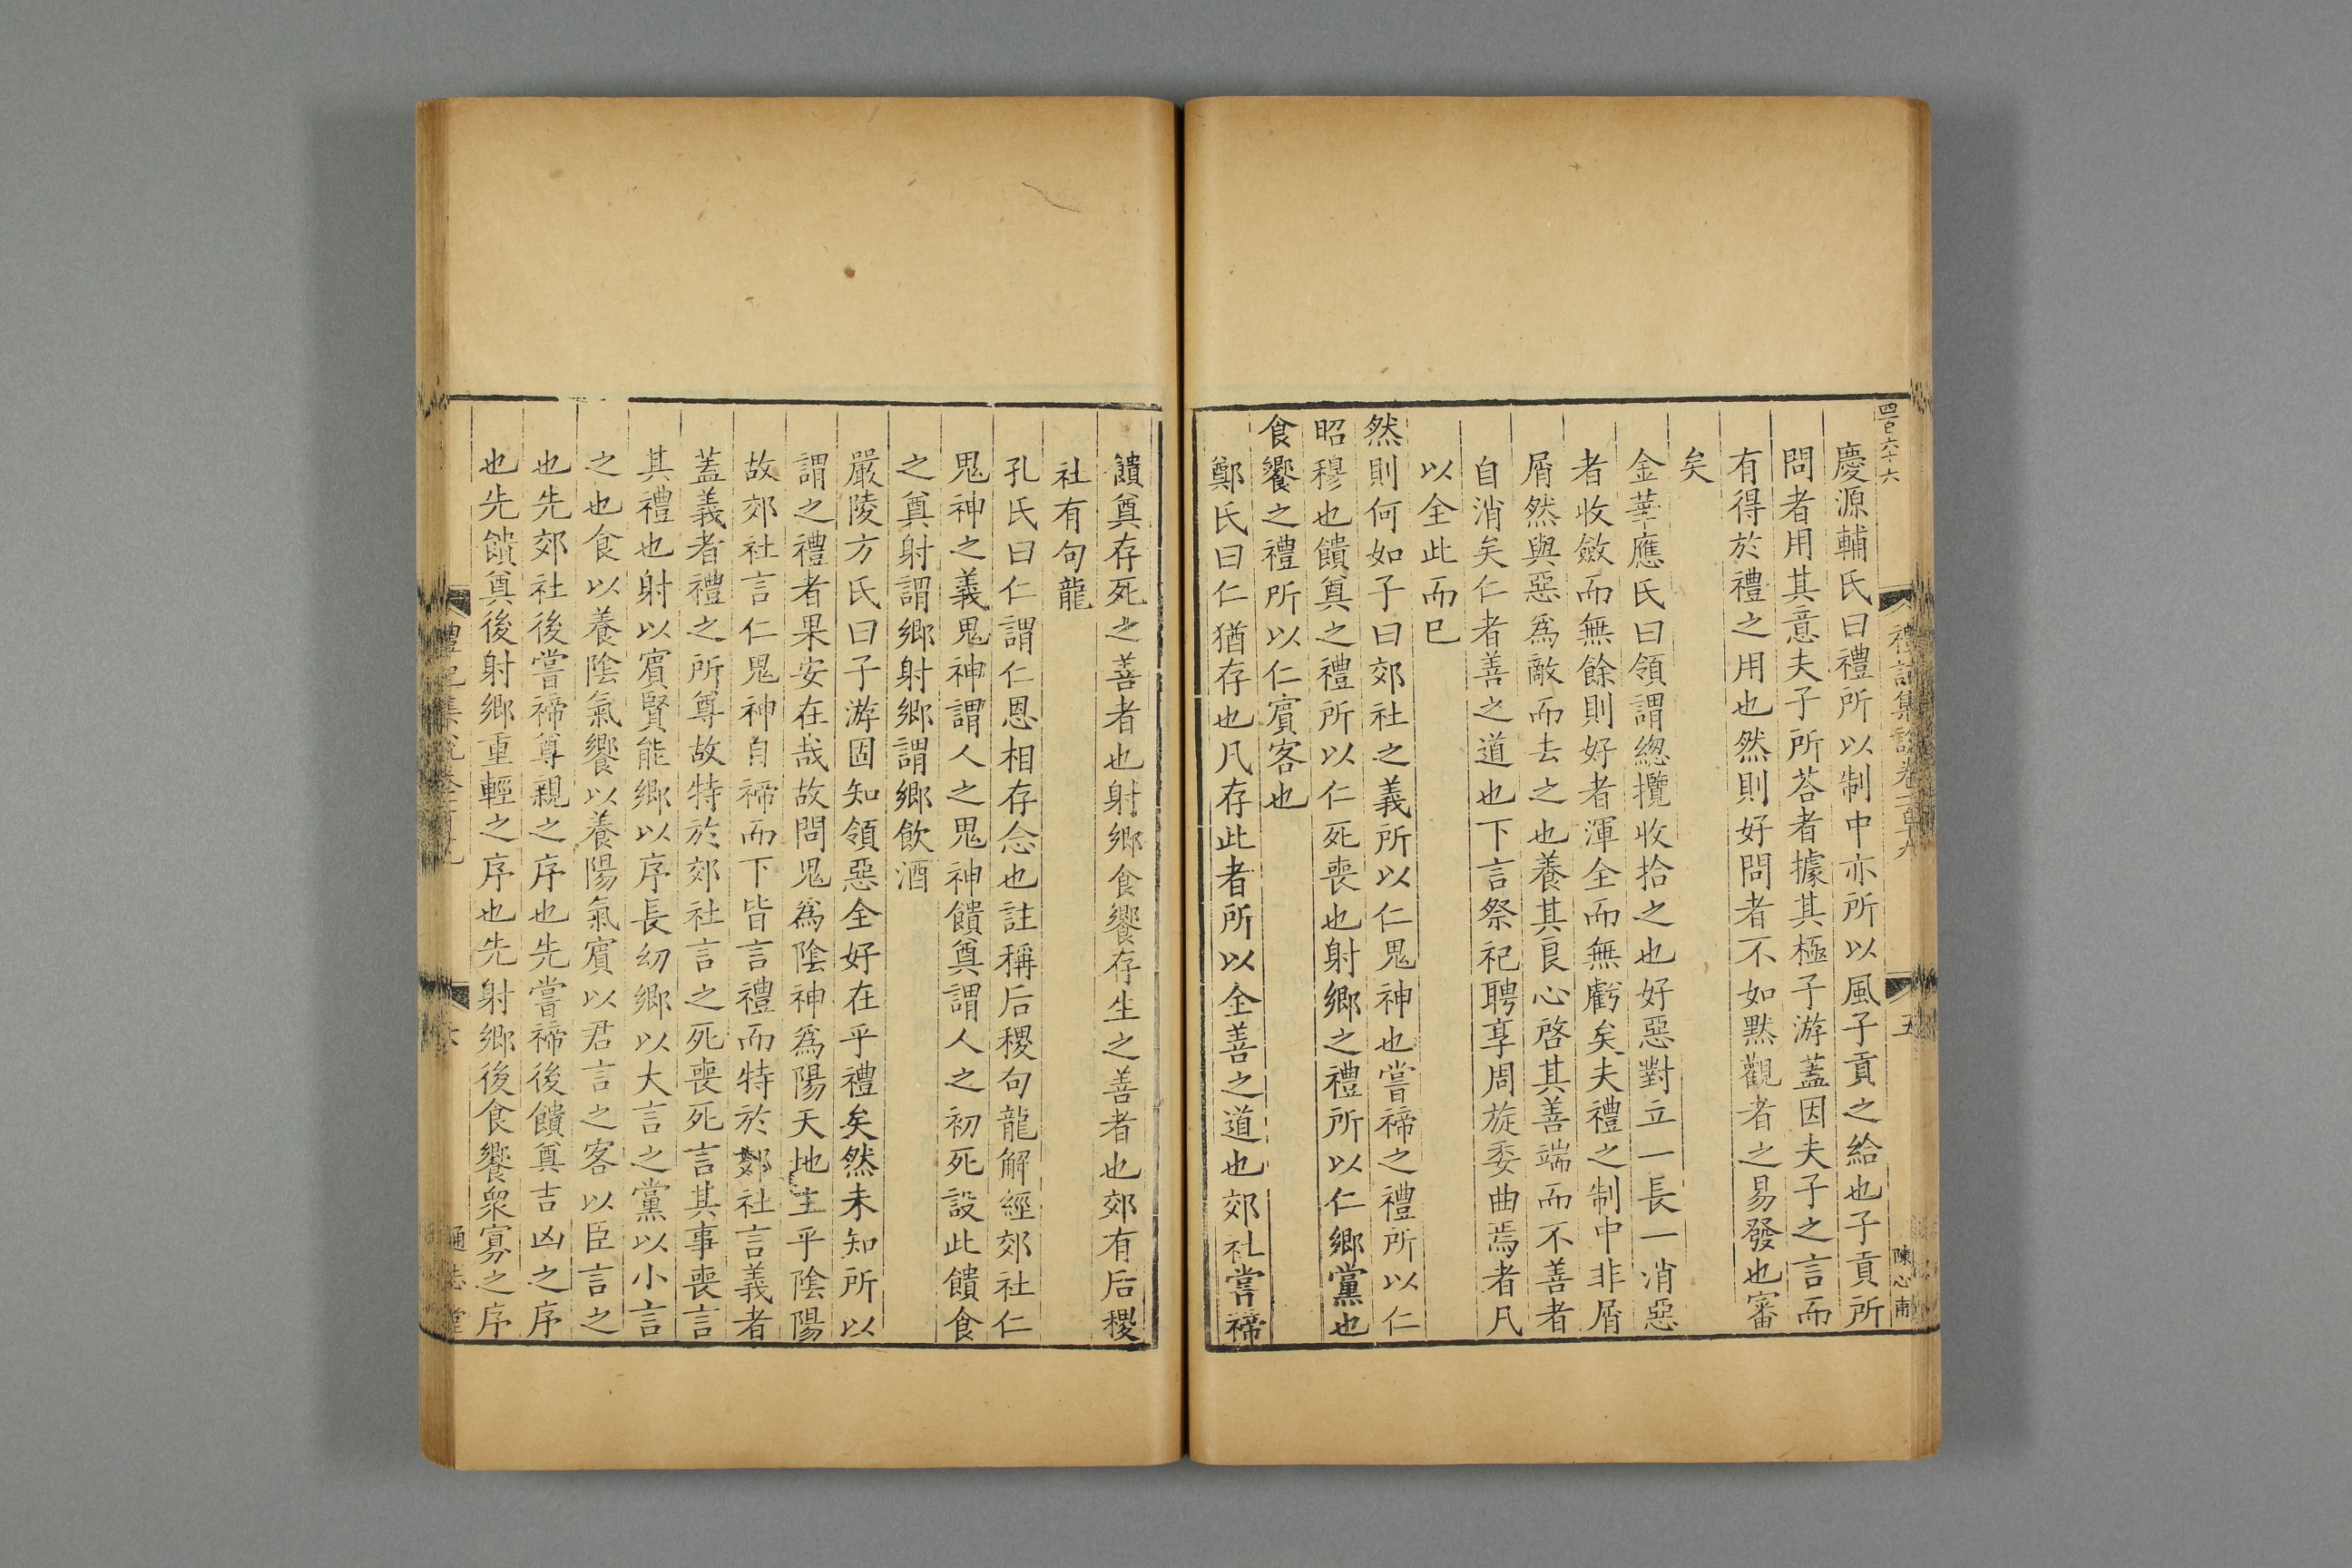 四百六十六
禮記集說卷一百十九
五
陳心甫
慶源輔氏曰禮所以制中亦所以風子貢之給也子貢所
問者用其意夫子所荅者據其極子游蓋因夫子之言而
有得於禮之用也然則好問者不如默觀者之易發也審
矣
金華應氏曰領謂緫攬收拾之也好惡對立一長一消惡
者收斂而無餘則好者渾全而無虧矣夫禮之制中非屑
屑然與惡爲敵而去之也養其良心啓其善端而不善者
自消矣仁者善之道也下言祭祀聘享周旋委曲焉者凡
以全此而已
然則何如子曰郊社之義所以仁鬼神也嘗禘之禮所以仁
昭穆也饋奠之禮所以仁死喪也射鄉之禮所以仁鄉黨也
食饗之禮所以仁賓客也
鄭氏曰仁猶存也凡存此者所以全善之道也郊社嘗禘
饋奠存死之善者也射鄉食饗存生之善者也郊有后稷
社有句龍
孔氏曰仁謂仁恩相存念也註稱后稷句龍解經郊社仁
鬼神之義鬼神謂人之鬼神饋奠謂人之初死設此饋食
之奠射謂鄉射鄉謂鄉飲酒
嚴陵方氏曰子游固知領惡全好在乎禮矣然未知所以
謂之禮者果安在哉故問鬼爲陰神爲陽天地主乎陰陽
故郊社言仁鬼神自禘而下皆言禮而特於郊社言義者
蓋義者禮之所尊故特於郊社言之死喪死言其事喪言
其禮也射以賓賢能鄉以序長幼鄉以大言之黨以小言
之也食以養陰氣饗以養陽氣賓以君言之客以臣言之
也先郊社後嘗禘尊親之序也先嘗禘後饋奠吉凶之序
也先饋奠後射鄉重輕之序也先射鄉後食饗衆寡之序
禮記集說卷一百十九
六
通志堂